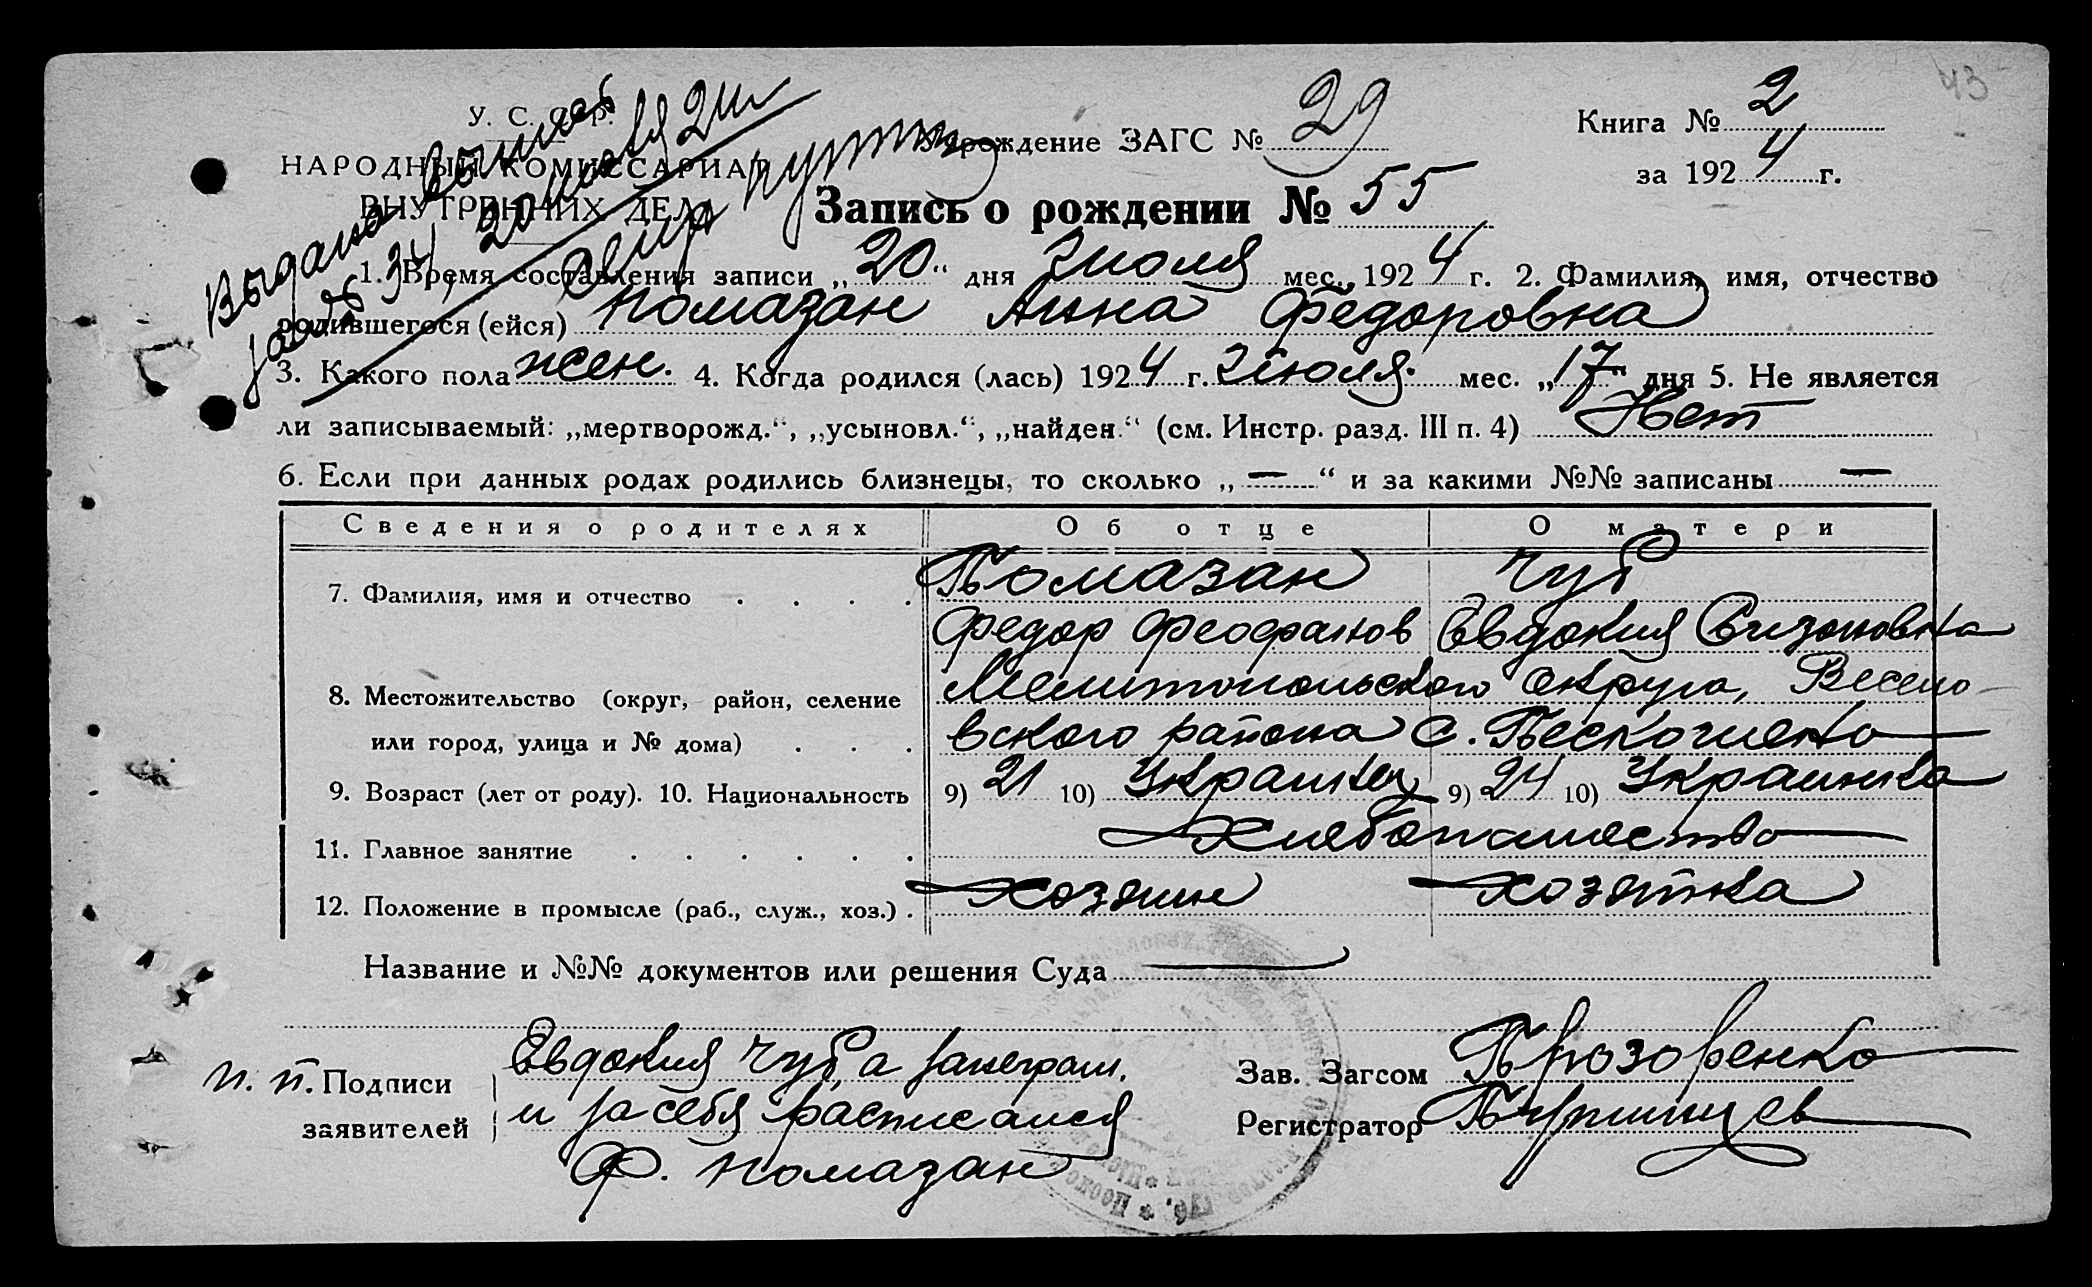 43
У. С. С. Р.
НАРОДНЫЙ КОМИССАРИАТ
ВНУТРЕННИХ ДЕЛ
Выдана выписка
34 20
Учреждение ЗАГС № 29
Книга № 2
за 1924 г.
Запись о рождении № 55
1. Время составления записи „20“ дня Июля мес. 1924 г. 2. Фамилия, имя, отчество
родившегося (ейся) Помазан Анна Федоровна
3. Какого пола жен. 4. Когда родился (лась) 1924 г. Июля. мес. „17“ дня 5. Не является
ли записываемый: „мертворожд.“, „усыновл.“, „найден.“ (см. Инстр. разд. III п. 4) Нет
6. Если при данных родах родились близнецы, то сколько „—“ и за какими №№ записаны —
Сведения о родителях Об отце О матери
7. Фамилия, имя и отчество Помазан Чуб
Федор Феофанов Евдокия Сизоновна
8. Местожительство (округ, район, селение Мелитопольского округа, Весело-
или город, улица и № дома) вского района с. Пескошено
9. Возраст (лет от роду). 10. Национальность 9) 21 10) Украинец 9) 24 10) Украинка
11. Главное занятие Хлебопашество
12. Положение в промысле (раб., служ., хоз.) Хозяин хозяйка
Название и №№ документов или решения Суда —
п. п. Подписи заявителей
Евдокия Чуб, а за неграм.
и за себя расписался
Ф. Помазан
Зав. Загсом Прозоренко
Регистратор